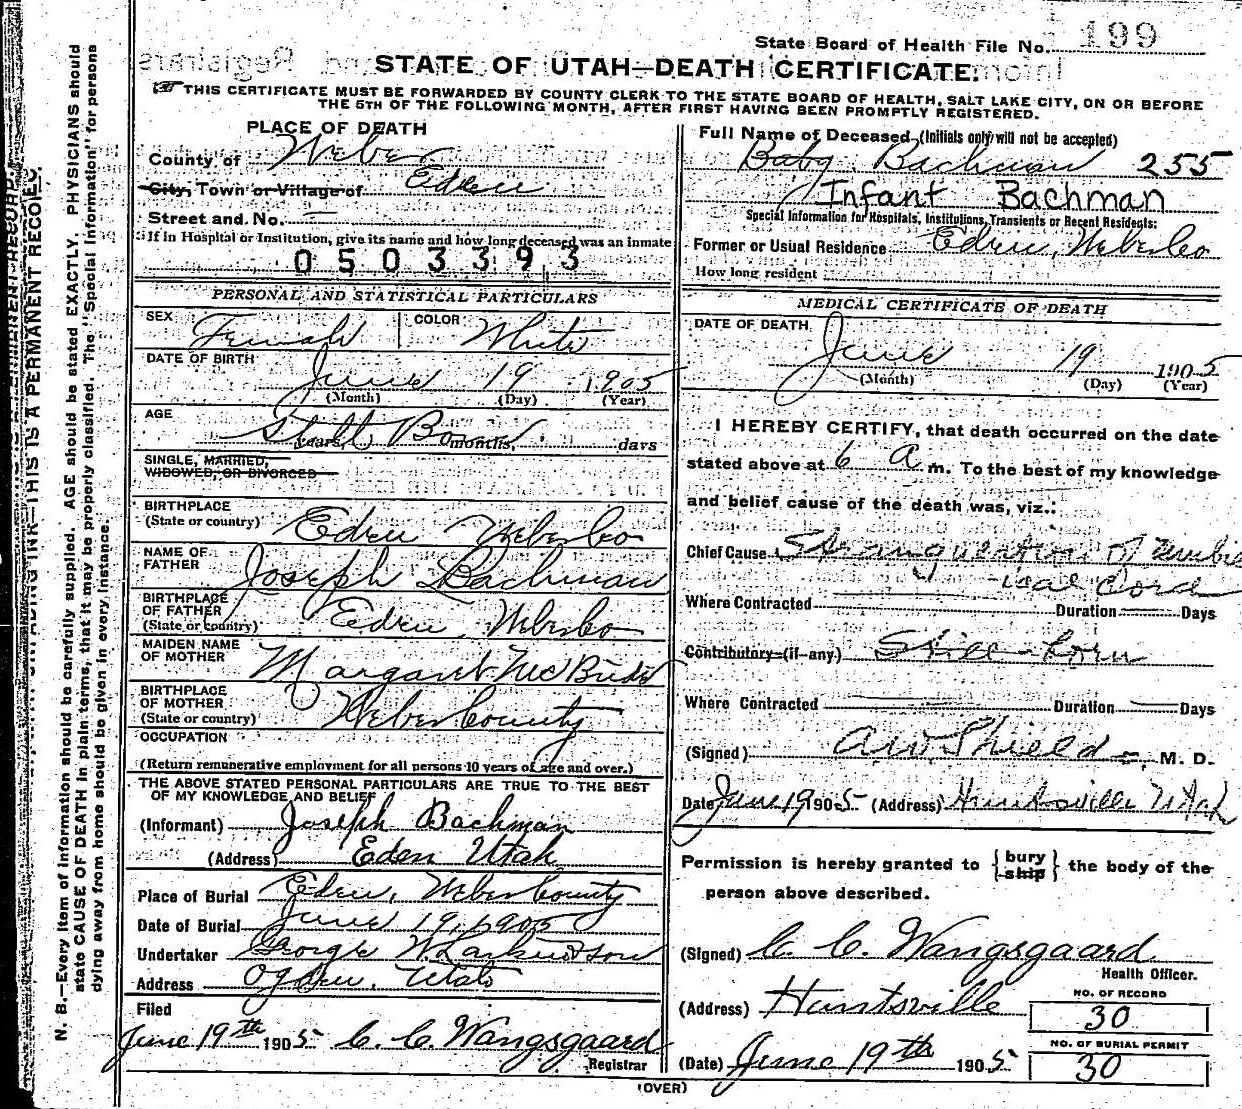 State Board of Health File No. 199
STATE OF UTAH—DEATH CERTIFICATE.
THIS CERTIFICATE MUST BE FORWARDED BY COUNTY CLERK TO THE STATE BOARD OF HEALTH, SALT LAKE CITY, ON OR BEFORE
THE 5TH OF THE FOLLOWING MONTH, AFTER FIRST HAVING BEEN PROMPTLY REGISTERED.
PLACE OF DEATH
County of Weber
City, Town or Village of Eden
Street and No. —
If in Hospital or Institution, give its name and how long deceased was an inmate
0503393
PERSONAL AND STATISTICAL PARTICULARS
SEX Female COLOR White
DATE OF BIRTH June 19 1905
(Month) (Day) (Year)
AGE
Still Born years, months, days
SINGLE, MARRIED,
WIDOWED, OR DIVORCED
BIRTHPLACE
(State or country) Eden Weber Co
NAME OF
FATHER Joseph Bachman
BIRTHPLACE
OF FATHER
(State or country) Eden Weber Co
MAIDEN NAME
OF MOTHER Margaret McBride
BIRTHPLACE
OF MOTHER
(State or country) Weber County
OCCUPATION
(Return remunerative employment for all persons 10 years of age and over.)
THE ABOVE STATED PERSONAL PARTICULARS ARE TRUE TO THE BEST
OF MY KNOWLEDGE AND BELIEF
(Informant) Joseph Bachman
(Address) Eden Utah
Place of Burial Eden, Weber County
Date of Burial June 19, 1905
Undertaker George W. Larkin & Son
Address Ogden, Utah
Filed
June 19th 1905 C. C. Wangsgaard
Registrar
Full Name of Deceased (Initials only will not be accepted)
Baby Bachman 255
Infant Bachman
Special Information for Hospitals, Institutions, Transients or Recent Residents:
Former or Usual Residence Eden, Weber Co
How long resident
MEDICAL CERTIFICATE OF DEATH
DATE OF DEATH
June 19 1905
(Month) (Day) (Year)
I HEREBY CERTIFY, that death occurred on the date
stated above at 6 A m. To the best of my knowledge
and belief cause of the death was, viz.:
Chief Cause Strangulation of Umbil
-ical Cord
Where Contracted Duration Days
Contributory (if any) Still-born
Where Contracted Duration Days
(Signed) A W Shields, M. D.
Date June 19 1905 (Address) Huntsville Utah
Permission is hereby granted to { bury
ship } the body of the
person above described.
(Signed) C. C. Wangsgaard
Health Officer.
(Address) Huntsville
NO. OF RECORD
30
NO. OF BURIAL PERMIT
30
(Date) June 19th 1905
(OVER)
THIS IS A PERMANENT RECORD
N. B.—Every item of information should be carefully supplied. AGE should be stated EXACTLY. PHYSICIANS should
state CAUSE OF DEATH in plain terms, that it may be properly classified. The "Special Information" for persons
dying away from home should be given in every instance.